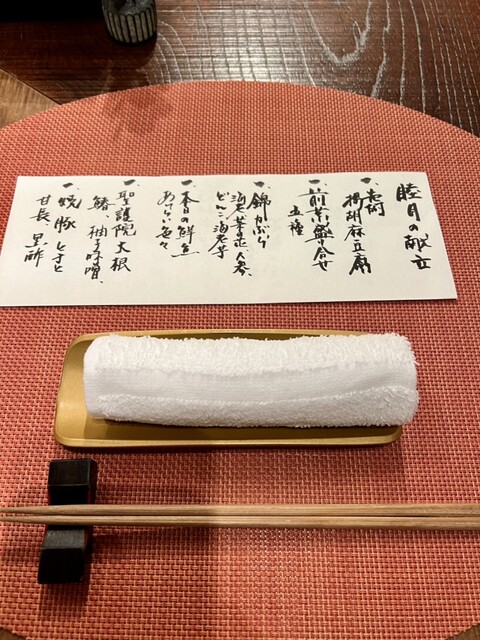 睦月の献立
一、先附
揚胡麻豆腐
一、前菜盛り合せ
五種
一、錦かぶら
海老芋、人参、
どんこ、
一、本日の鮮魚
あしらい色々
一、聖護院大根
鰆、柚子味噌、
一、焼豚 とさと
甘長 黒酢